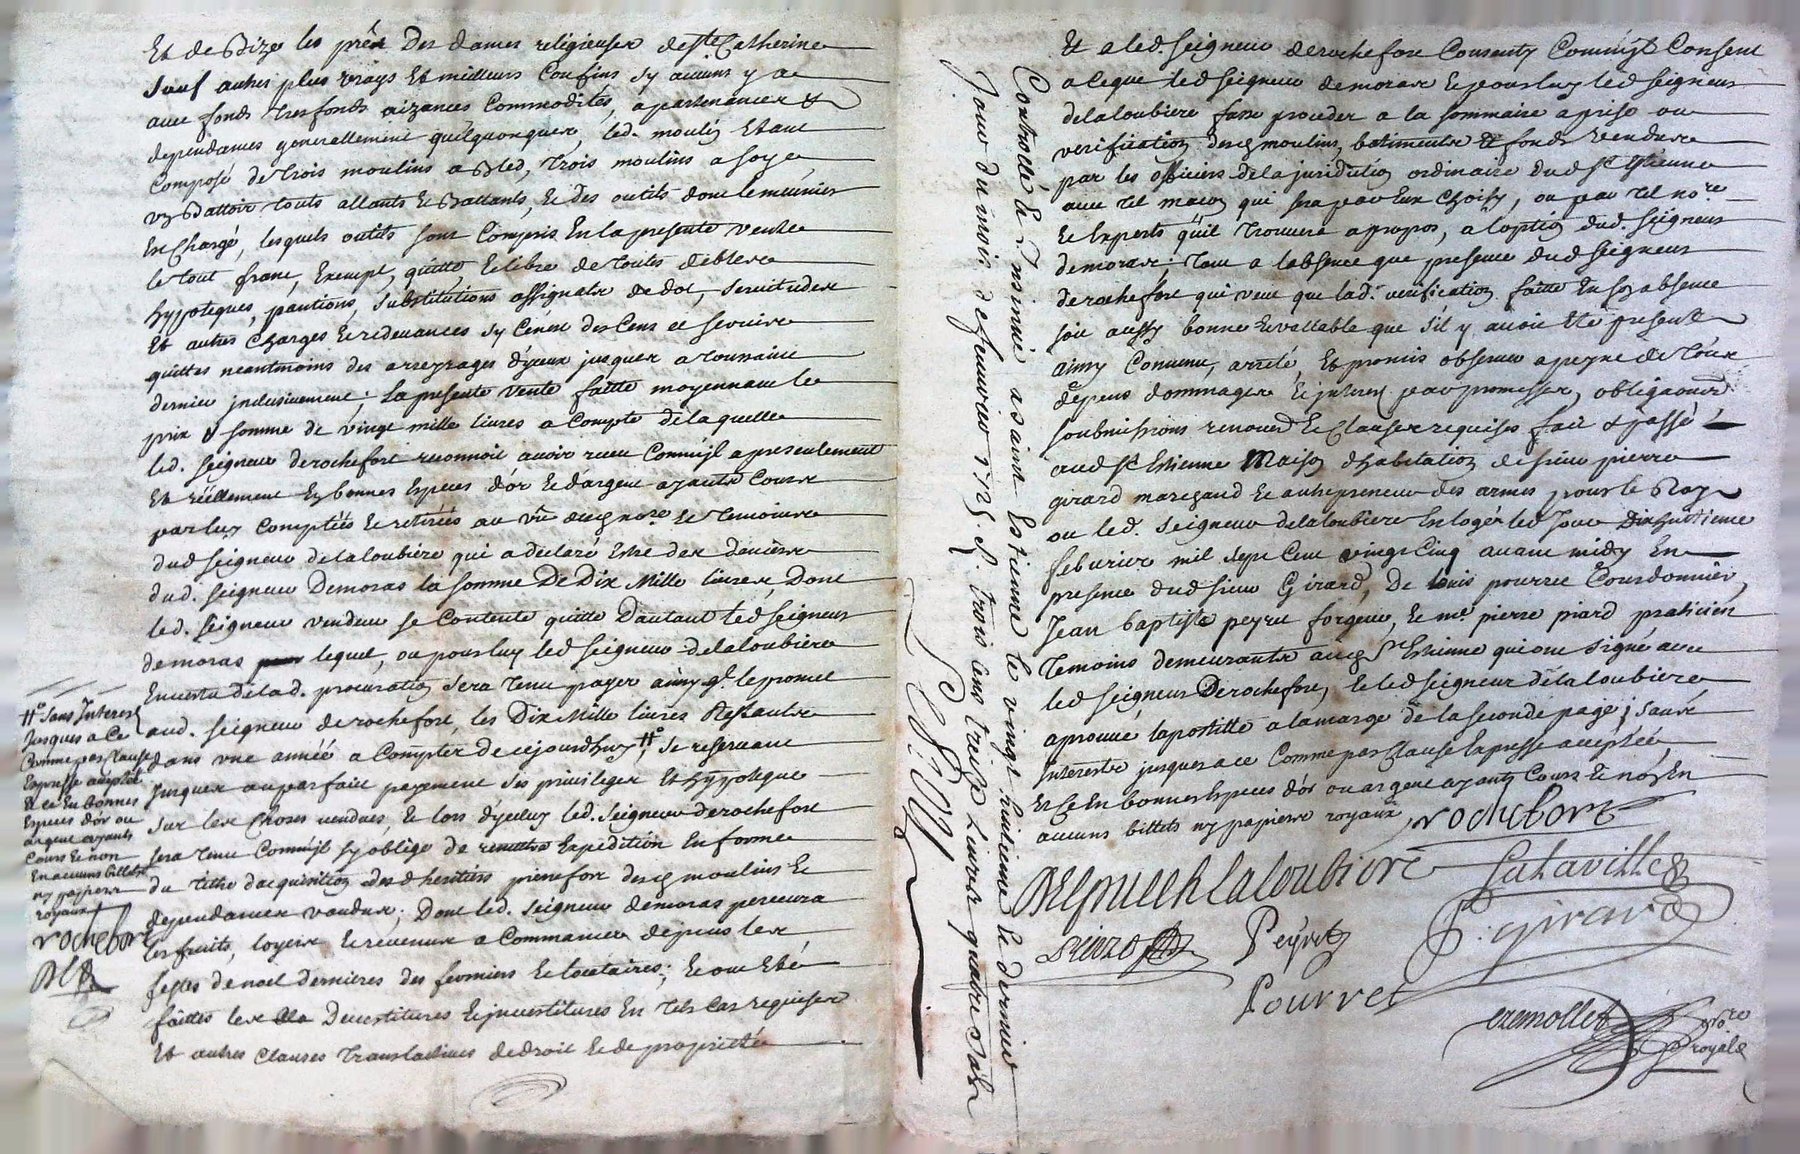 Et de Bize les prés Des dames religieuses de Ste Catherine
Sauf autres plus vrays Et meilleurs Confins sy aucuns y a
avec fonds tresfonds aizances Commodités, apartenances &
dependances generallement quelquonques, led. moulin Etant
Composé de trois moulins a Bled, trois moulins a soye
un Battoir touts allants & Battants, & des outils dont le meunier
En Chargé, lesquels outils sont Compris En la presente vente
le tout franc, Exempt, quitte & libre de toutes debtes
hypoteques, pantions, substitutions assignats de dot, servitudes
Et autres Charges & redevances sy Ce n'est des Cens et servis
quittes neantmoins des arreyrages d'yceux jusques a toussaint
dernier inclusivement; La presente vente faitte moyennant le
prix & somme de vingt mille livres a Compte de laquelle
led. seigneur de rochefort reconnoit avoir receu Comm'il a presentement
Et réellement En bonnes Especes d'or & d'argent ayants Cours
par luy Comptées & retirées au vû desd. nore & temoins
dud seigneur delaloubiere qui a declaré Estre des deniers
dud. seigneur Demoras la somme De Dix Mille livres, Dont
led. seigneur vendeur se Contente quitte D'autant led seigneur
demoras lequel, ou pour luy led seigneur delaloubiere
En vertu de lad. procuration sera tenu payer ainsy ql. le promet
aud. seigneur de rochefort, les Dix Mille livres Restants
dans une année a Compter De cejourdhuy # se reservant
jusques au parfait payement ses privileges Et hypoteque
sur les Choses vendues, & lors d'yceluy led. seigneur de rochefort
sera tenu Comm'il s'y oblige de remettre Expedition En forme
du titre d'acquisition des d heritiers pierrefort desd moulins &
dependances vendus; Dont led. seigneur demoras percevra
les fruits, loyers & revenus a Commancer depuis les
festes de noel dernieres des fermiers & locataires; & ont Eté
faittes les Devestitures & investitures En tels cas requises
Et autres Clauses translatives de droit & de proprietté
# sans Interest
jusques a Ce
Comme par Clause
Expresse acceptée
Et ce En bonnes
Especes d'or ou
argent ayants
Cours & non
En aucuns billets
ny papiers
royaux
rochefort
Controllé & Insinué a saint Estienne le vingt huitieme & dernier
jour du mois de feuvrier 1725 R. trois cens treize Livres quatre sols
Et a led. seigneur de rochefort Consenty Comm'il Consent
a Ce que led seigneur demoras & pour luy led seigneur
delaloubiere fasse proceder a la sommaire aprise ou
verification desd moulins, batiments & fonds vendus
par les officiers de la juridiction ordinaire dud St Estienne
avec tel maçon qui sera par Eux Choisy, ou par tel nore
& Experts qu'il trouvera apropos, a l'option dud. seigneur
demoras; tant a l'absence que presence dud seigneur
de rochefort qui veut que lad. verification faitte En son absence
soit aussy bonne & vallable que s'il y avoit Eté present
ainsy Convenu, arreté, Et promis observer a peyne de tous
depens dommages & interest par promesses, obligations
soubmissions renoncé & Clauses requises fait & passé
aud St Estienne Maison d'habitation de sieur pierre
girard marchand & antrepreneur des armes pour le Roy
ou led. seigneur delaloubiere En logé led Jour Dixhuitieme
feburier mil sept Cent vingt Cinq avant midy En
presence dud sieur Girard, De louis pourret Courdonnier,
Jean baptiste peyret forgeur, & me. pierre piard praticien
temoins demeurants aud St Estienne qui ont signé avec
led seigneur De rochefort, & led seigneur delaloubiere
aprouvé l'apostille a la marge de la seconde page; sans
interests jusques a ce Comme par Clause Expresse acceptée,
Et Ce En bonnes Especes d'or ou argent ayants Cours & non En
aucuns billets ny papiers royaux, rochefort
laloubiere
Peyret
P. girard
Pourret
nore
royal